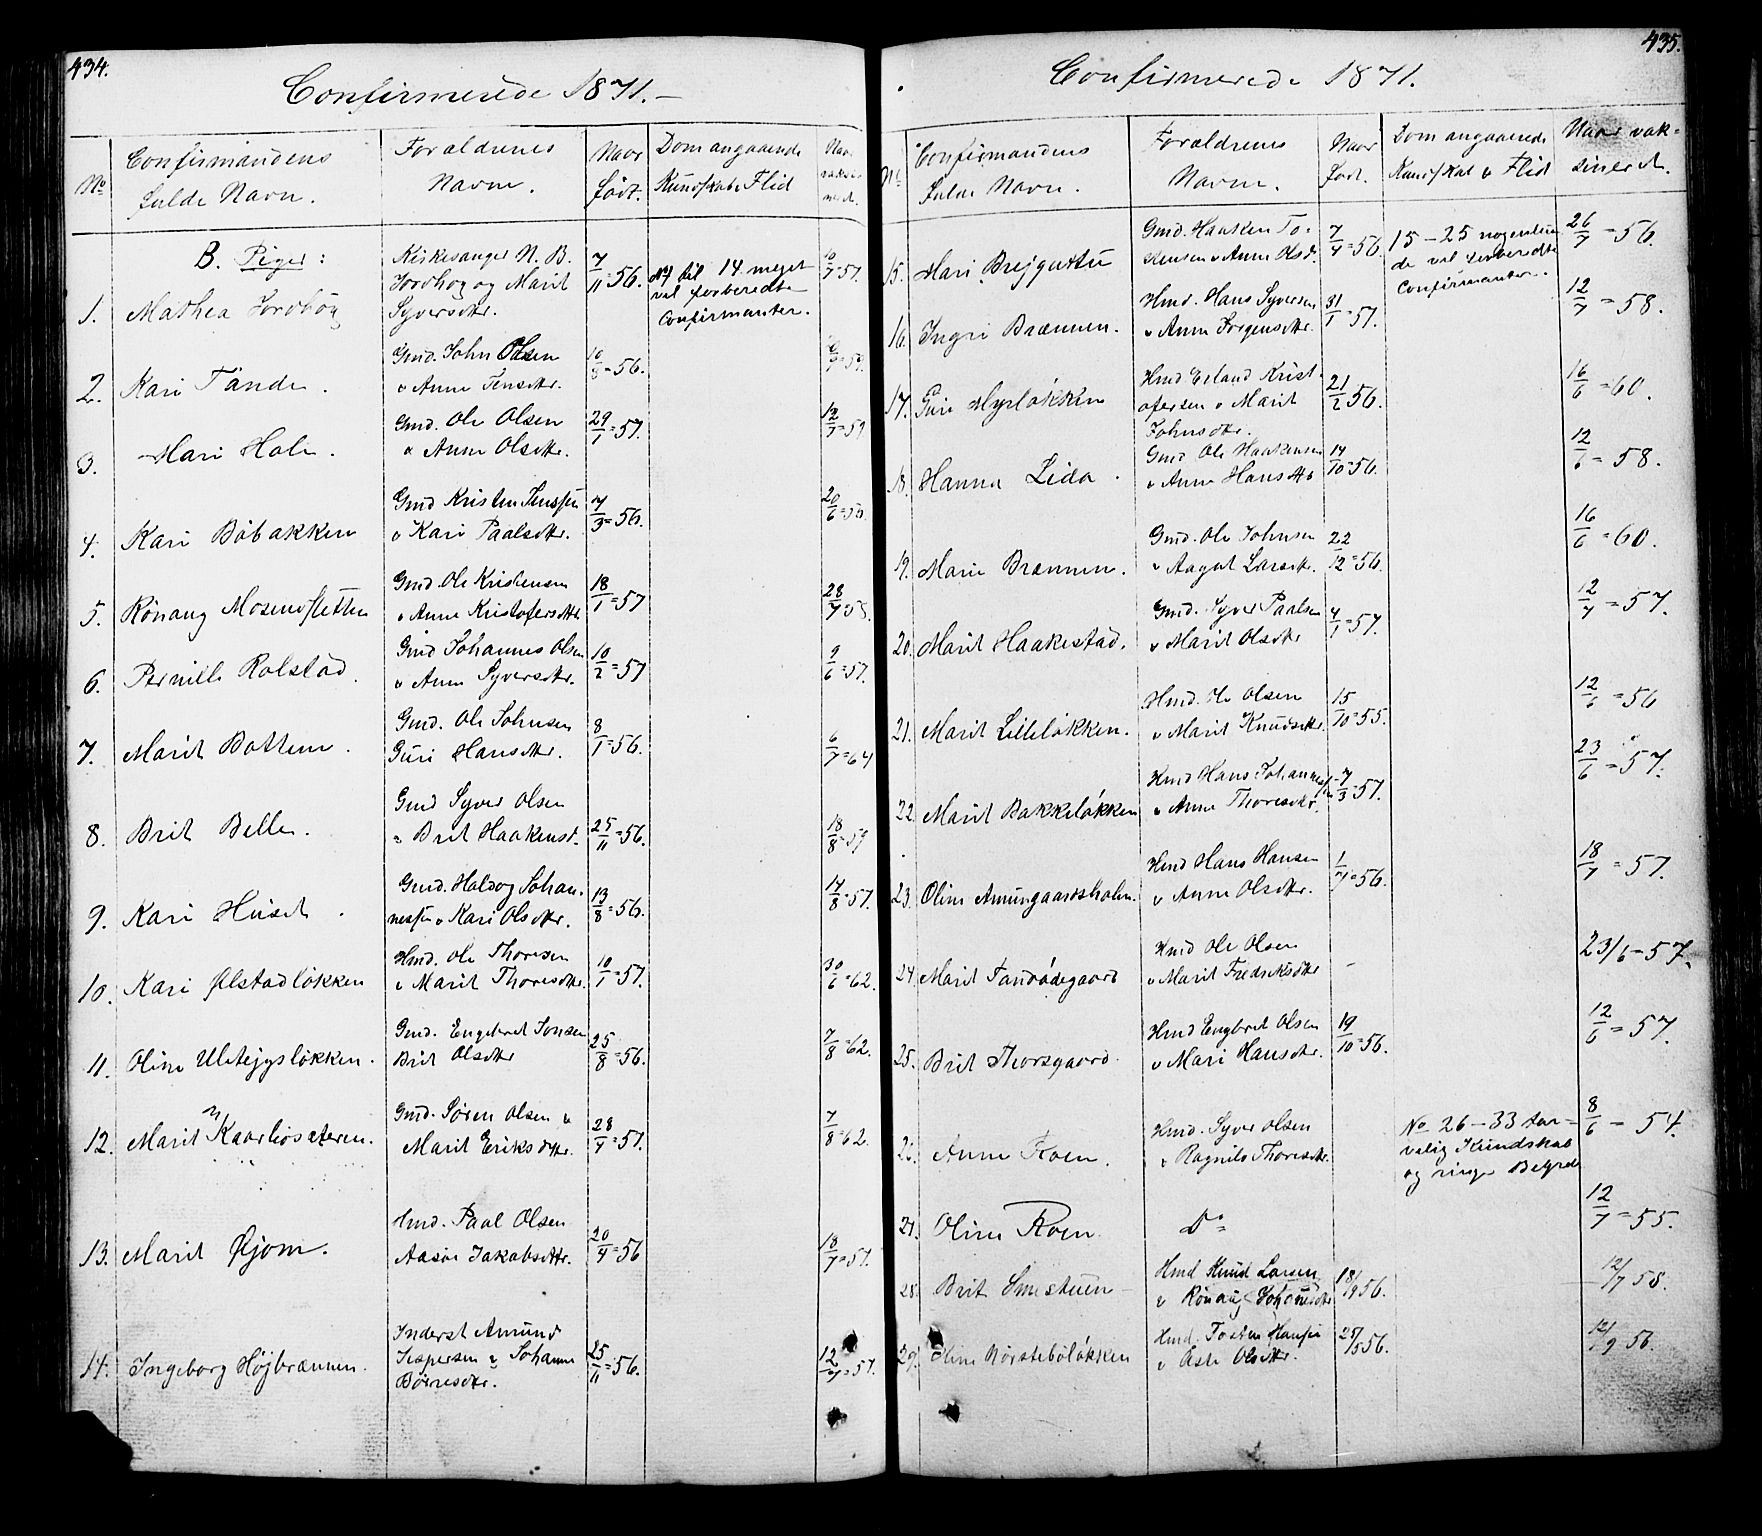 434.
Confirmerede 1871.—
No
Confirmandens
fulde Navn.
Forældrenes
Navne.
Naar
født.
Dom angaaende
Kundskab o Flid
Naar
vaksi-
neret.
B. Piger:
1. Mathea Jordhøy
Kirkesanger N. B.
Jordhøy og Marit
Syversdtr.
7/11=56.
No 1 til 14 meget
vel forberedte
Confirmanter.
10/7=57.
2. Kari Tände.
Gmd. John Olsen
o Anne Jensdtr.
10/8=56.
3. Mari Hole.
Gmd. Ole Olsen
o Anne Olsdtr.
29/1=57.
12/7=59
4. Kari Böbakken
Gmd Kristen Jenssen
o Kari Paalsdtr.
7/3=56.
20/6=56.
5. Rönaug Mosenssletten
Gmd. Ole Kristensen
o Anne Kristofersdtr
18/1=57
28/7=58.
6. Pernille Rolstad.
Gmd Johannes Olsen
o Anne Syversdtr.
10/2=57
9/6=57.
7. Marit Bottem.
Gmd. Ole Johnsen
Guri Hansdtr.
8/1=56.
6/7=64
8. Brit Belle.
Gmd Syver Olsen
o Brit Haakensd.
25/11=56.
18/8=59
9. Kari Huset.
Gmd. Haldog Johan-
nessen o Kari Olsdtr.
13/8=56.
14/8=57.
10. Kari Ølstadløkken
Hmd. Ole Thoresen
o Marit Thoresdtr.
10/1=57.
30/6=62.
11. Oline Ulekjgsløkken.
Gmd. Engebret Jonsen
Brit Olsdtr
25/8=56.
7/8=62.
12. Marit Kaarhiosæteren.
Gmd. Sören Olsen o
Marit Eriksdtr.
28/4=57.
7/8=62.
13. Marit Øjom.
Hmd. Paal Olsen
Aasne Jakobsdtr.
20/4=56
18/7=57.
14. Ingeborg Højbrænnen.
Inderst Amund
Jespersen o Johanne
Börresdtr.
25/11=56.
12/7=57.
435.
Confirmerede 1871.
No
Confirmandens
fulde Navn.
Forældrenes
Navne.
Naar
født.
Dom angaaende
Kundskab o Flid
Naar vak-
sineret.
15. Mari Brejgutu
Gmd. Haaken To-
kensen o Anne Hsd.
7/4=56
15-25 nogenlun
de vel forberedte
Confirmanter.
26/7=56.
16. Ingri Brænnen.
Hmd. Hans Syversen
o Anne Jörgensdtr.
31/1=57.
12/7=58.
17. Guri Myrløkken
Hmd Erland Krist-
ofersen o Marit
Johnsdtr.
21/2 56.
16/6=60.
18. Hanna Lida.
Gmd Ole Haakensen
o Anne Hansdtr
14/10=56.
12/6=58.
19. Marie Brænnen.
Gmd. Ole Johnsen
o Aagot Larsdtr.
22/12=56.
16/6=60.
20. Marit Haakestad.
Gmd. Syver Paalsen
o Marit Olsdtr
4/1=57.
12/7=57.
21. Marit Lilleløkken.
Hmd. Ole Olsen
o Marit Knudsdtr.
15/10=55.
12/6=56
22. Marit Bakkeløkken
Hmd Hans Johannessen
o Anne Thoresdtr.
7/3=57.
23/6=57.
23. Oline Amungaardsholm.
Hmd Hans Hansen
o Anne Olsdtr.
1/7=56.
18/7=57.
24. Marit Sandödegaard
Hmd Ole Olsen
o Marit Fredriksdtr
-
23/6-57.
25. Brit Thorsgaard.
Hmd Engbret Olsen
o Mari Hansdtr.
19/10=56.
12/6=57.
26. Anne Koen.
Hmd. Syver Olsen
o Ragnild Thoresdtr.
No 26-33 tar-
velig Kundskab
og ringe Begreb
8/6-54.
27. Oline Koen
Do
12/7=55.
28. Brit Smestuen
Hmd Knud Larsen
o Rönaug Johannesdtr
18/9 56.
12/7 58.
29. Oline Nörsteböløkken
Hmd. Tosten Hansen
o Esti Olsdtr.
25/5 56.
12/9 56.